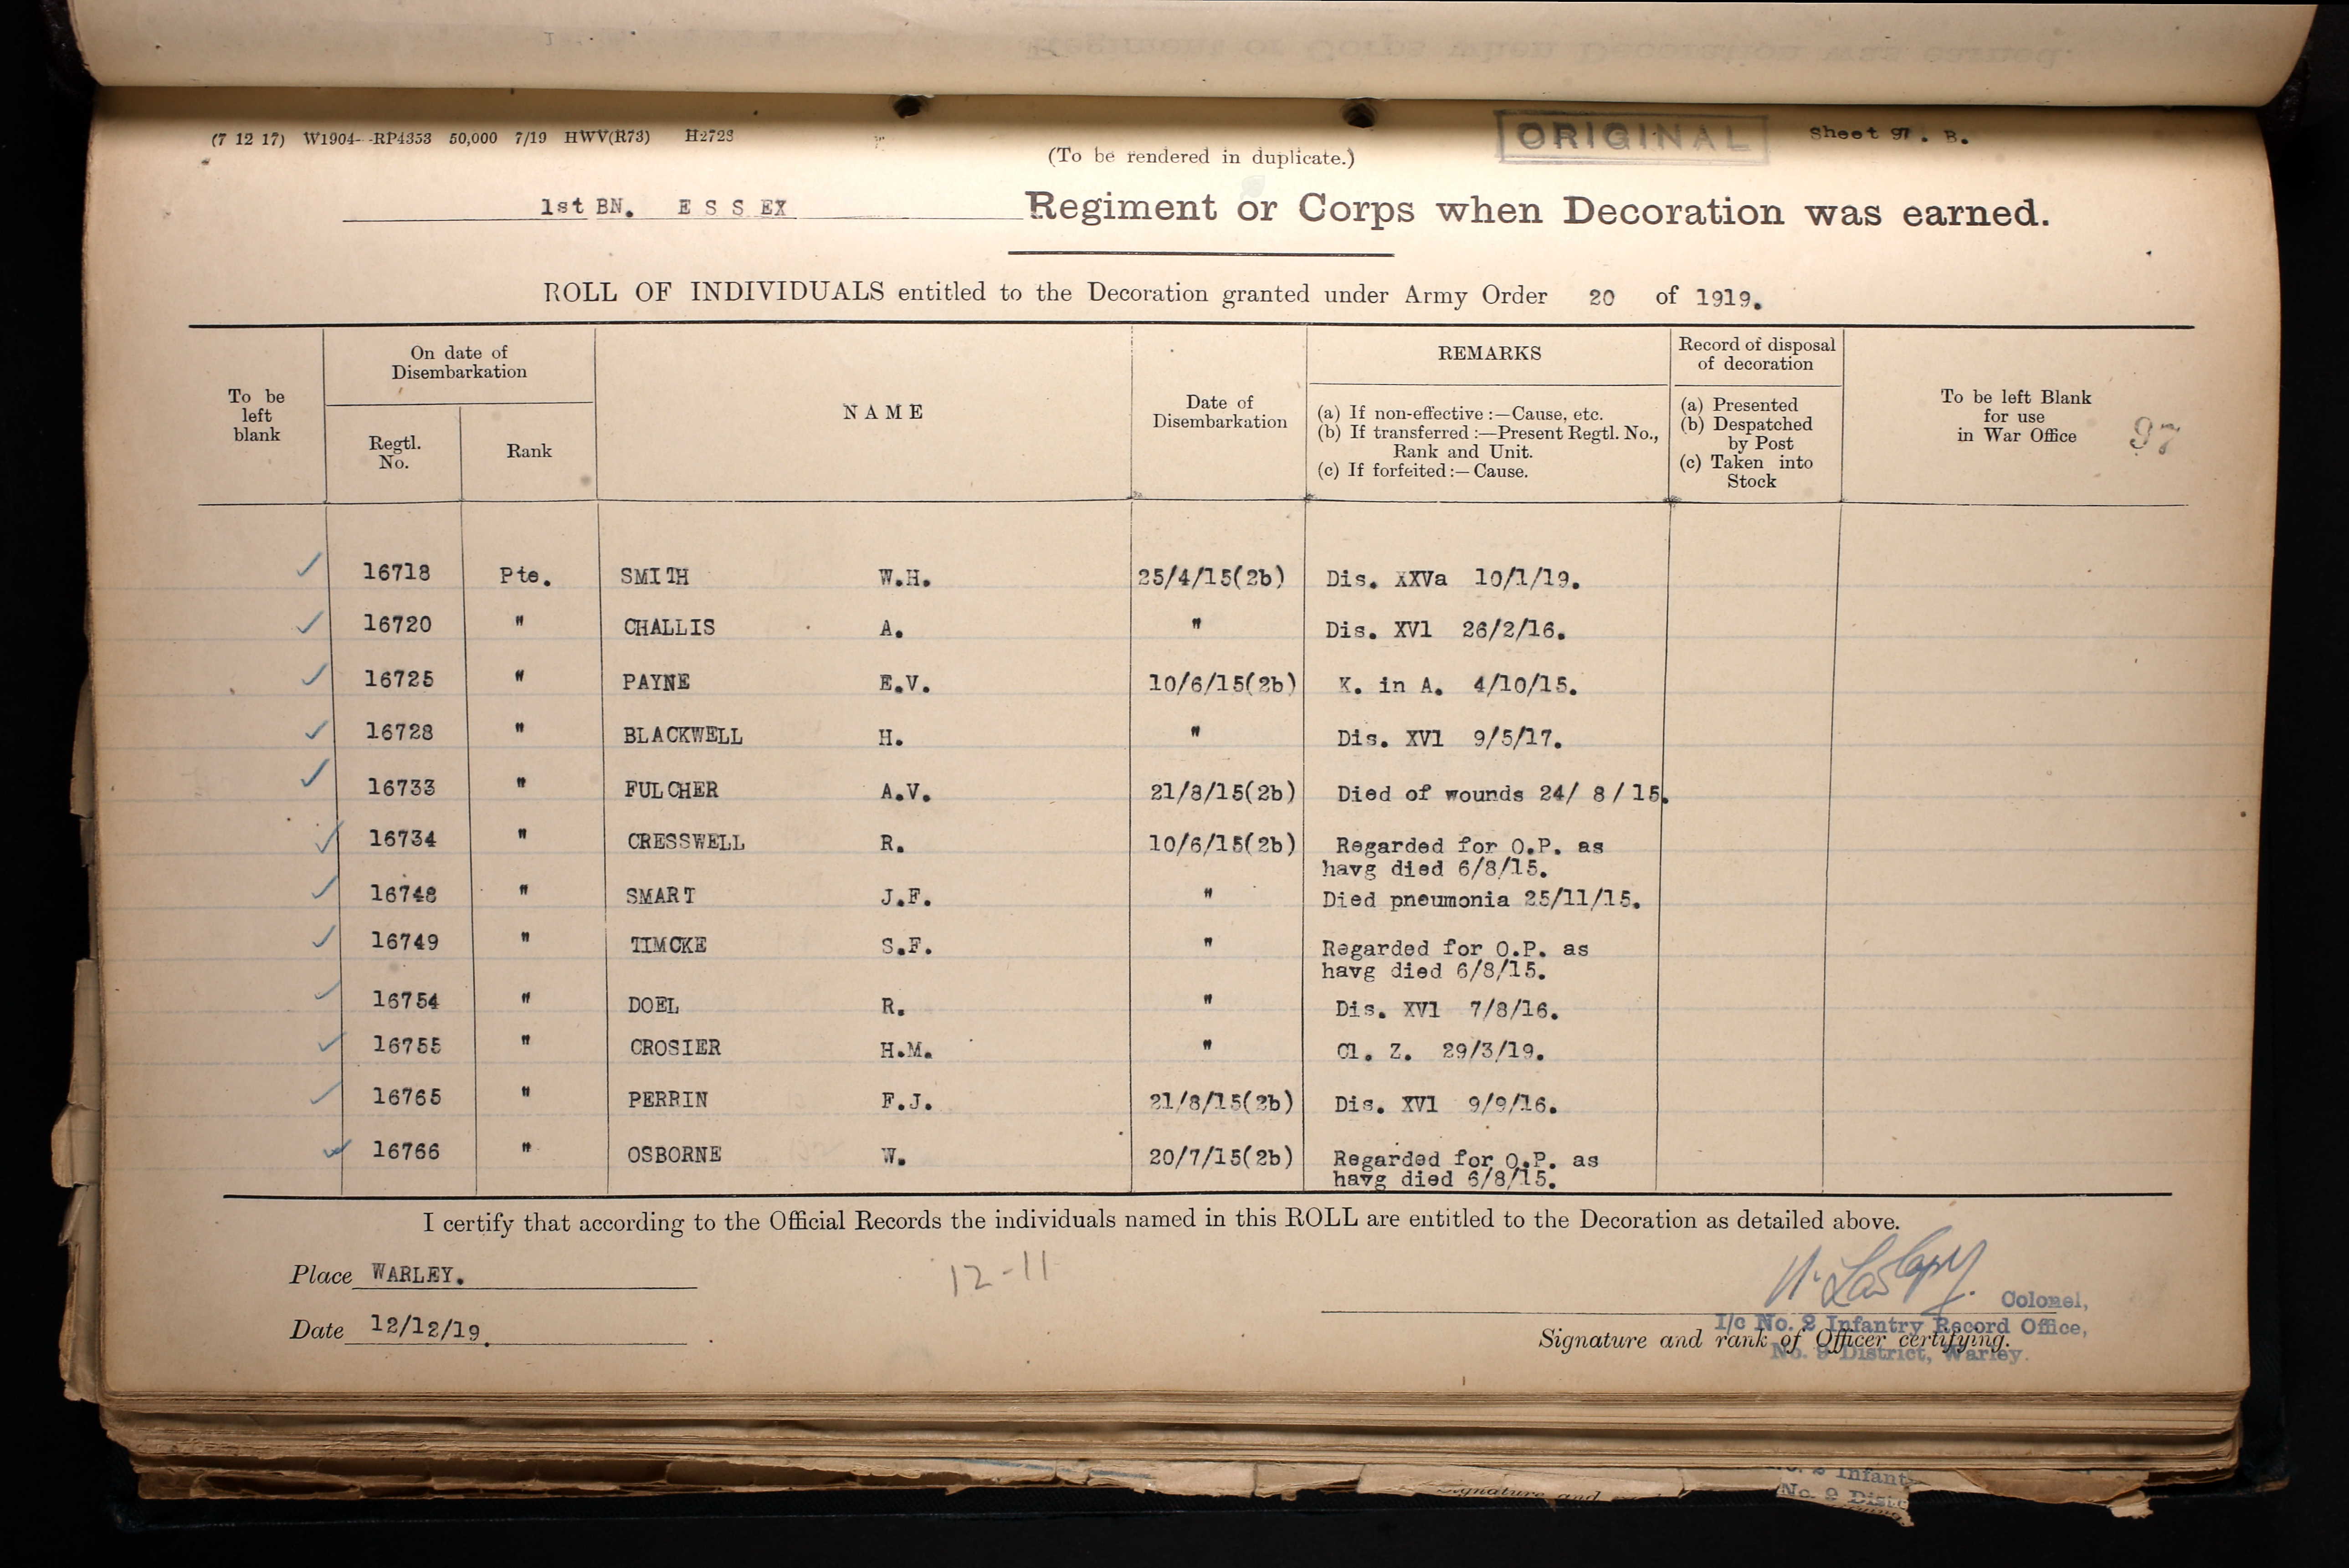 (7 12 17) W1904--RP4353 50,000 7/19 HWV(R73) H2723
ORIGINAL
Sheet 97. B.
(To be rendered in duplicate.)
1st BN. E S S EX Regiment or Corps when Decoration was earned.
ROLL OF INDIVIDUALS entitled to the Decoration granted under Army Order 20 of 1919.
To be left blank
On date of Disembarkation
Regtl. No.
Rank
NAME
Date of Disembarkation
REMARKS
(a) If non-effective :—Cause, etc.
(b) If transferred :—Present Regtl. No., Rank and Unit.
(c) If forfeited :— Cause.
Record of disposal of decoration
(a) Presented
(b) Despatched by Post
(c) Taken into Stock
To be left Blank for use in War Office
97
16718 Pte. SMITH W.H. 25/4/15(2b) Dis. XXVa 10/1/19.
16720 " CHALLIS A. " Dis. XVl 26/2/16.
16725 " PAYNE E.V. 10/6/15(2b) K. in A. 4/10/15.
16728 " BLACKWELL H. " Dis. XVl 9/5/17.
16733 " FULCHER A.V. 21/8/15(2b) Died of wounds 24/ 8 / 15.
16734 " CRESSWELL R. 10/6/15(2b) Regarded for O.P. as
havg died 6/8/15.
16748 " SMART J.F. " Died pneumonia 25/11/15.
16749 " TIMCKE S.F. " Regarded for O.P. as
havg died 6/8/15.
16754 " DOEL R. " Dis. XVl 7/8/16.
16755 " CROSIER H.M. " Cl. Z. 29/3/19.
16765 " PERRIN F.J. 21/8/15(2b) Dis. XVl 9/9/16.
16766 " OSBORNE W. 20/7/15(2b) Regarded for O.P. as
havg died 6/8/15.
I certify that according to the Official Records the individuals named in this ROLL are entitled to the Decoration as detailed above.
Place WARLEY.
12-11
Date 12/12/19.
Colonel,
I/c No. 2 Infantry Record Office,
Signature and rank of Officer certifying.
No. 9 District, Warley.